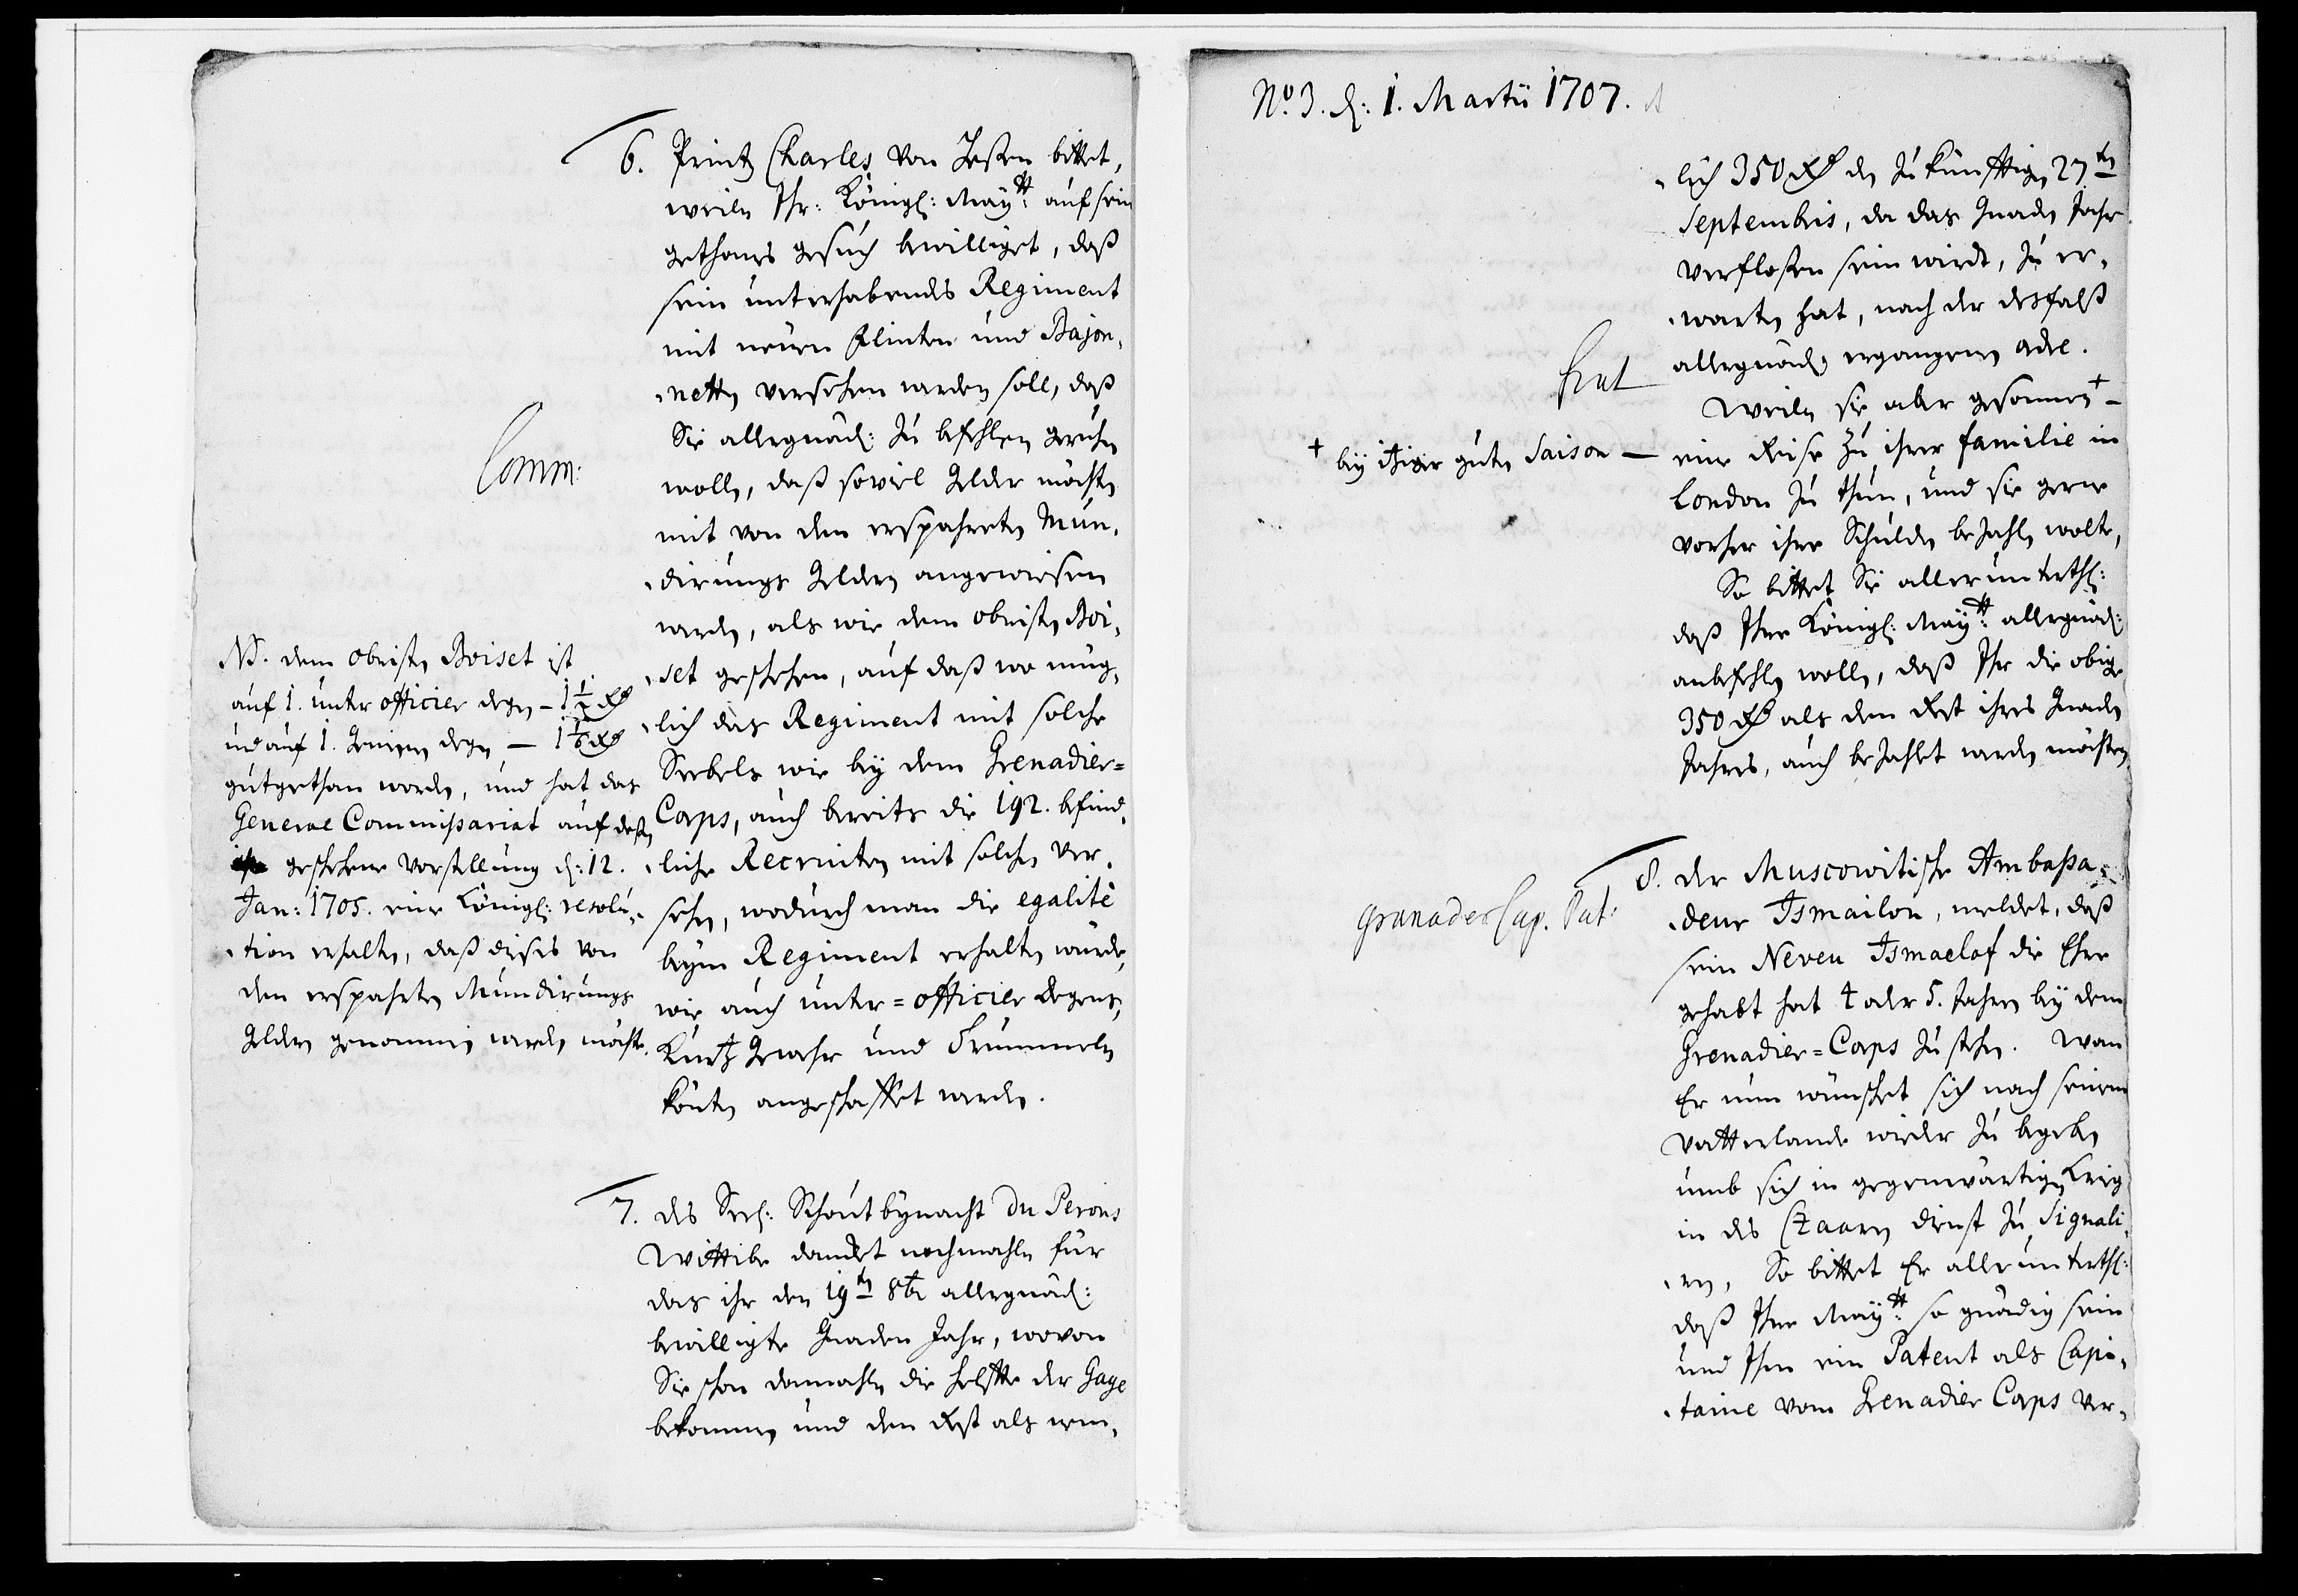 6. Printz Charles von Heßen bittet,
weiln Ihr: Königl: Maÿtt: auf sein
gethanes gesuch bewilliget, daß
sein unterhabendes Regiment
mit neuen Flinten und Bajon-
-netten versehen werden soll, daß
Sie allergnäd: zu befehlen geruhen
wollen, daß soviel Gelder möchten
mit von den erspahreten Mun-
-dirungs Geldern angewiesen
werden, als wie dem obristen Boi-
-set geschehen, auf daß wo müg-
-lich das Regiment mit solche
Seebels wie beÿ dem Grenadier=
Corps, auch bereits die 192. befind-
-liche Recruiten mit solchen ver-
sehen, wodurch man die egalité
beÿm Regiment erhalten würde,
wie auch unter=officier Degens,
Kurtz Gewehr und Trummeln
könten angeschaffet werden.
Comm:
NB. dem obristen Boiset ist
auf 1. unter officier degen - 1 1/2 Rd
und auf 1. Gemeinen degen - 1 1/6 Rd
gutgethan worden, und hat das
General Commißariat auf deßen
geschehene Vorstellung d: 12.
Jan: 1705. eine Königl: resolu-
-tion erhalten, daß dieses von
den erspahrten Mundirungs
Geldern genommen werden möchte.
7. des Seel: Schoutbynacht du Perons
Wittibe dancket nochmahln für
das ihr den 19ten 8br allergnäd:
bewilligte Gnaden Jahr, wovon
Sie schon damahln die helffte der Gage
bekommen und den Rest als nem-
No. 3. d: 1. Martii 1707.
-lich 350 Rd den zukünfftigen 27ten
Septembris, da das Gnaden Jahr
verfloßen sein wirdt, zu er-
-warten hat, nach der desfalß
allergnäd: ergangenen ordre.
Weiln sie aber gesonnen +
+ beÿ itziger guten Saison —
eine Reise zu ihrer familie in
London zu thun, und sie gerne
vorher ihre Schulden bezahlen wolte,
So bittet Sie allerunterth:
daß Ihre Königl: Maÿtt: allergnäd:
anbefehlen wollen, daß Ihr die obige
350 Rd als den Rest ihres Gnaden
Jahres, auch bezahlet werden möchten.
8. der Muscowitische Ambaßa-
-deur Ismailov, meldet, daß
Granader Cap. Pat:
sein Neveu Ismaelof die Ehre
gehabt hat 4 oder 5. Jahren beÿ dem
Grenadier=Corps zu stehen. Wan
Er nun wünschet sich nach seinem
Vatterlande wieder zu begeben
umb sich in gegenwärtigen Krieg
in des Czaaren dienst zu signali-
-ren, So bittet Er allerunterth:
daß Ihre Maÿtt: so gnädig sein
und Ihm ein Patent als Capi-
-taine vom Grenadier Corps ver-